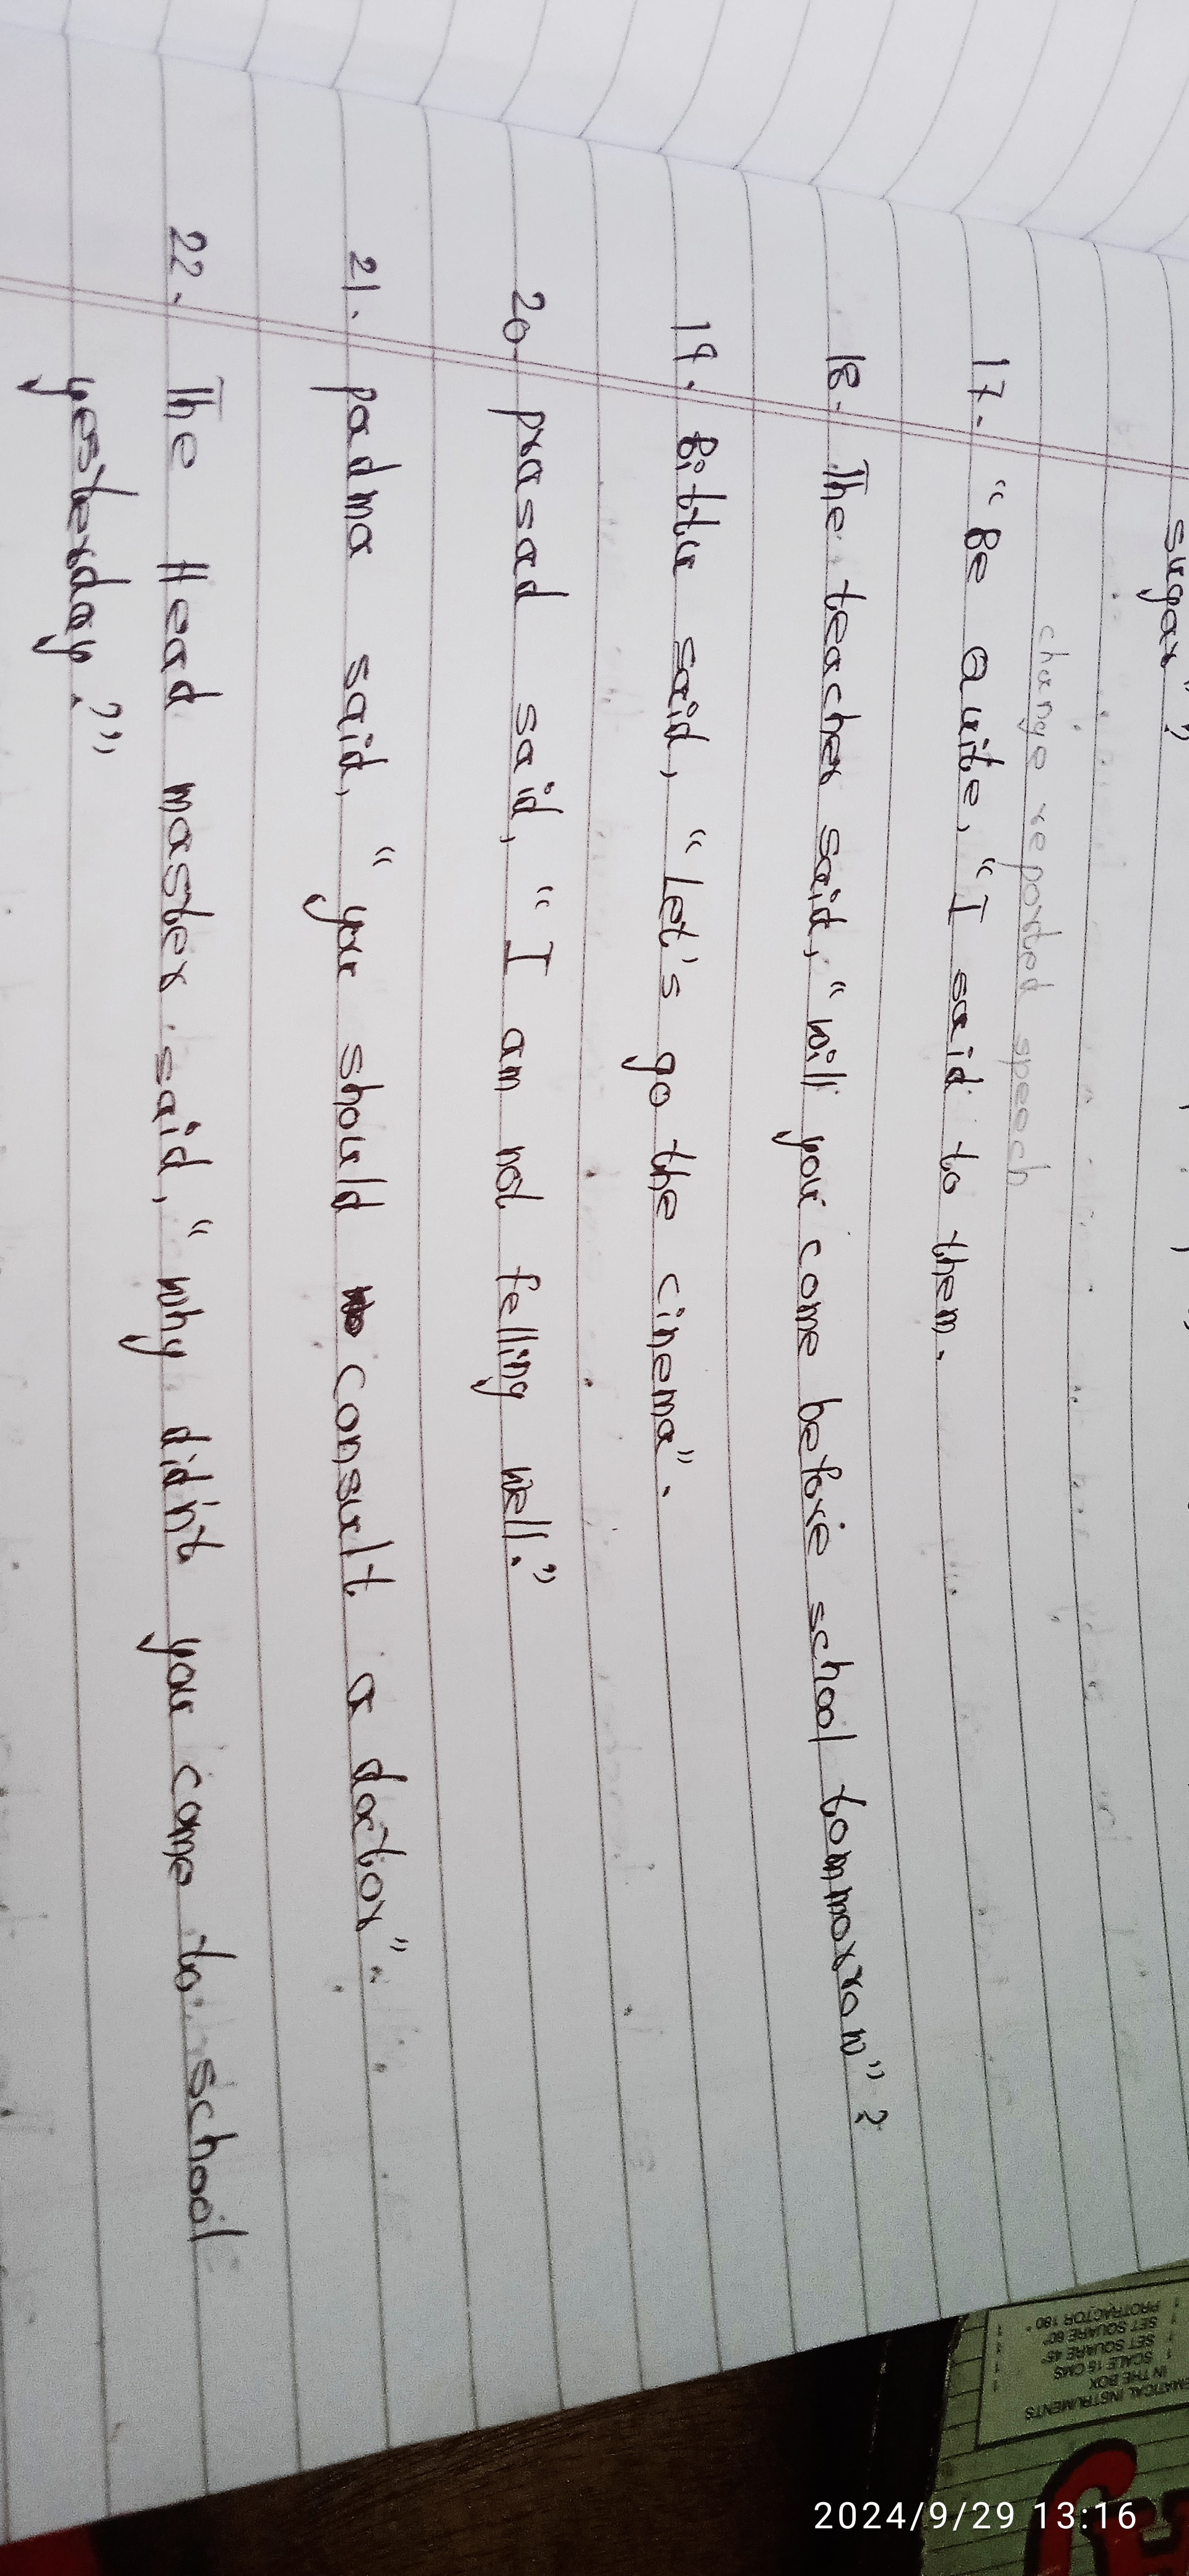 sugar"?
change reported speech
17. "Be Quite, "I said to them.
18. The teacher said, "will you come before school tommorrow"?
19. Bittu said, "Let's go the cinema".
20. prasad said, "I am not felling well."
21. padma said, "you should consult a doctor".
22. The Head master said, "why didn't you come to school
yesterday?"
MATICAL INSTRUMENTS
IN THE BOX
SCALE 15 CMS 1
SET SQUARE 45° 1
SET SQUARE 60° 1
PROTRACTOR 180° 1
2024/9/29 13:16